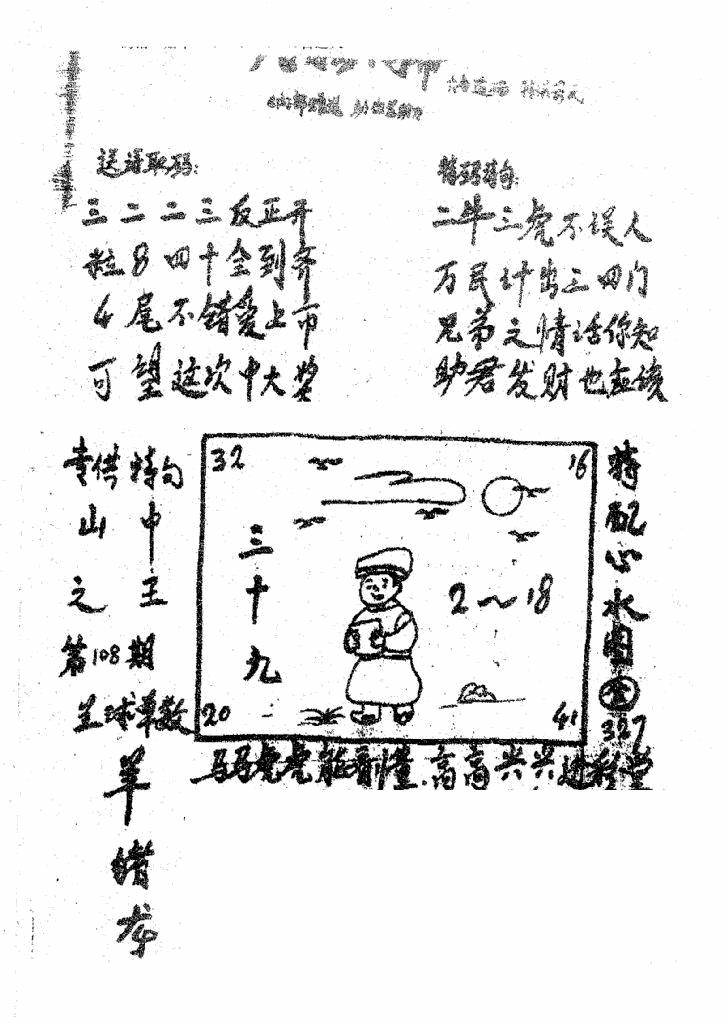 送诗取码:
三二二三反正开
粒8四十全到齐
4尾不错爱上市
可望这次中大奖
特码诗句:
二牛三虎不误人
万民计出三四门
兄弟之情话你知
助君发财也应该
特句
山中
之王
第108期
生球单数
羊
猪
龙
32
16
三十九
2~18
20
41
特配心水图
327
马马虎虎能看懂.高高兴兴进彩堂